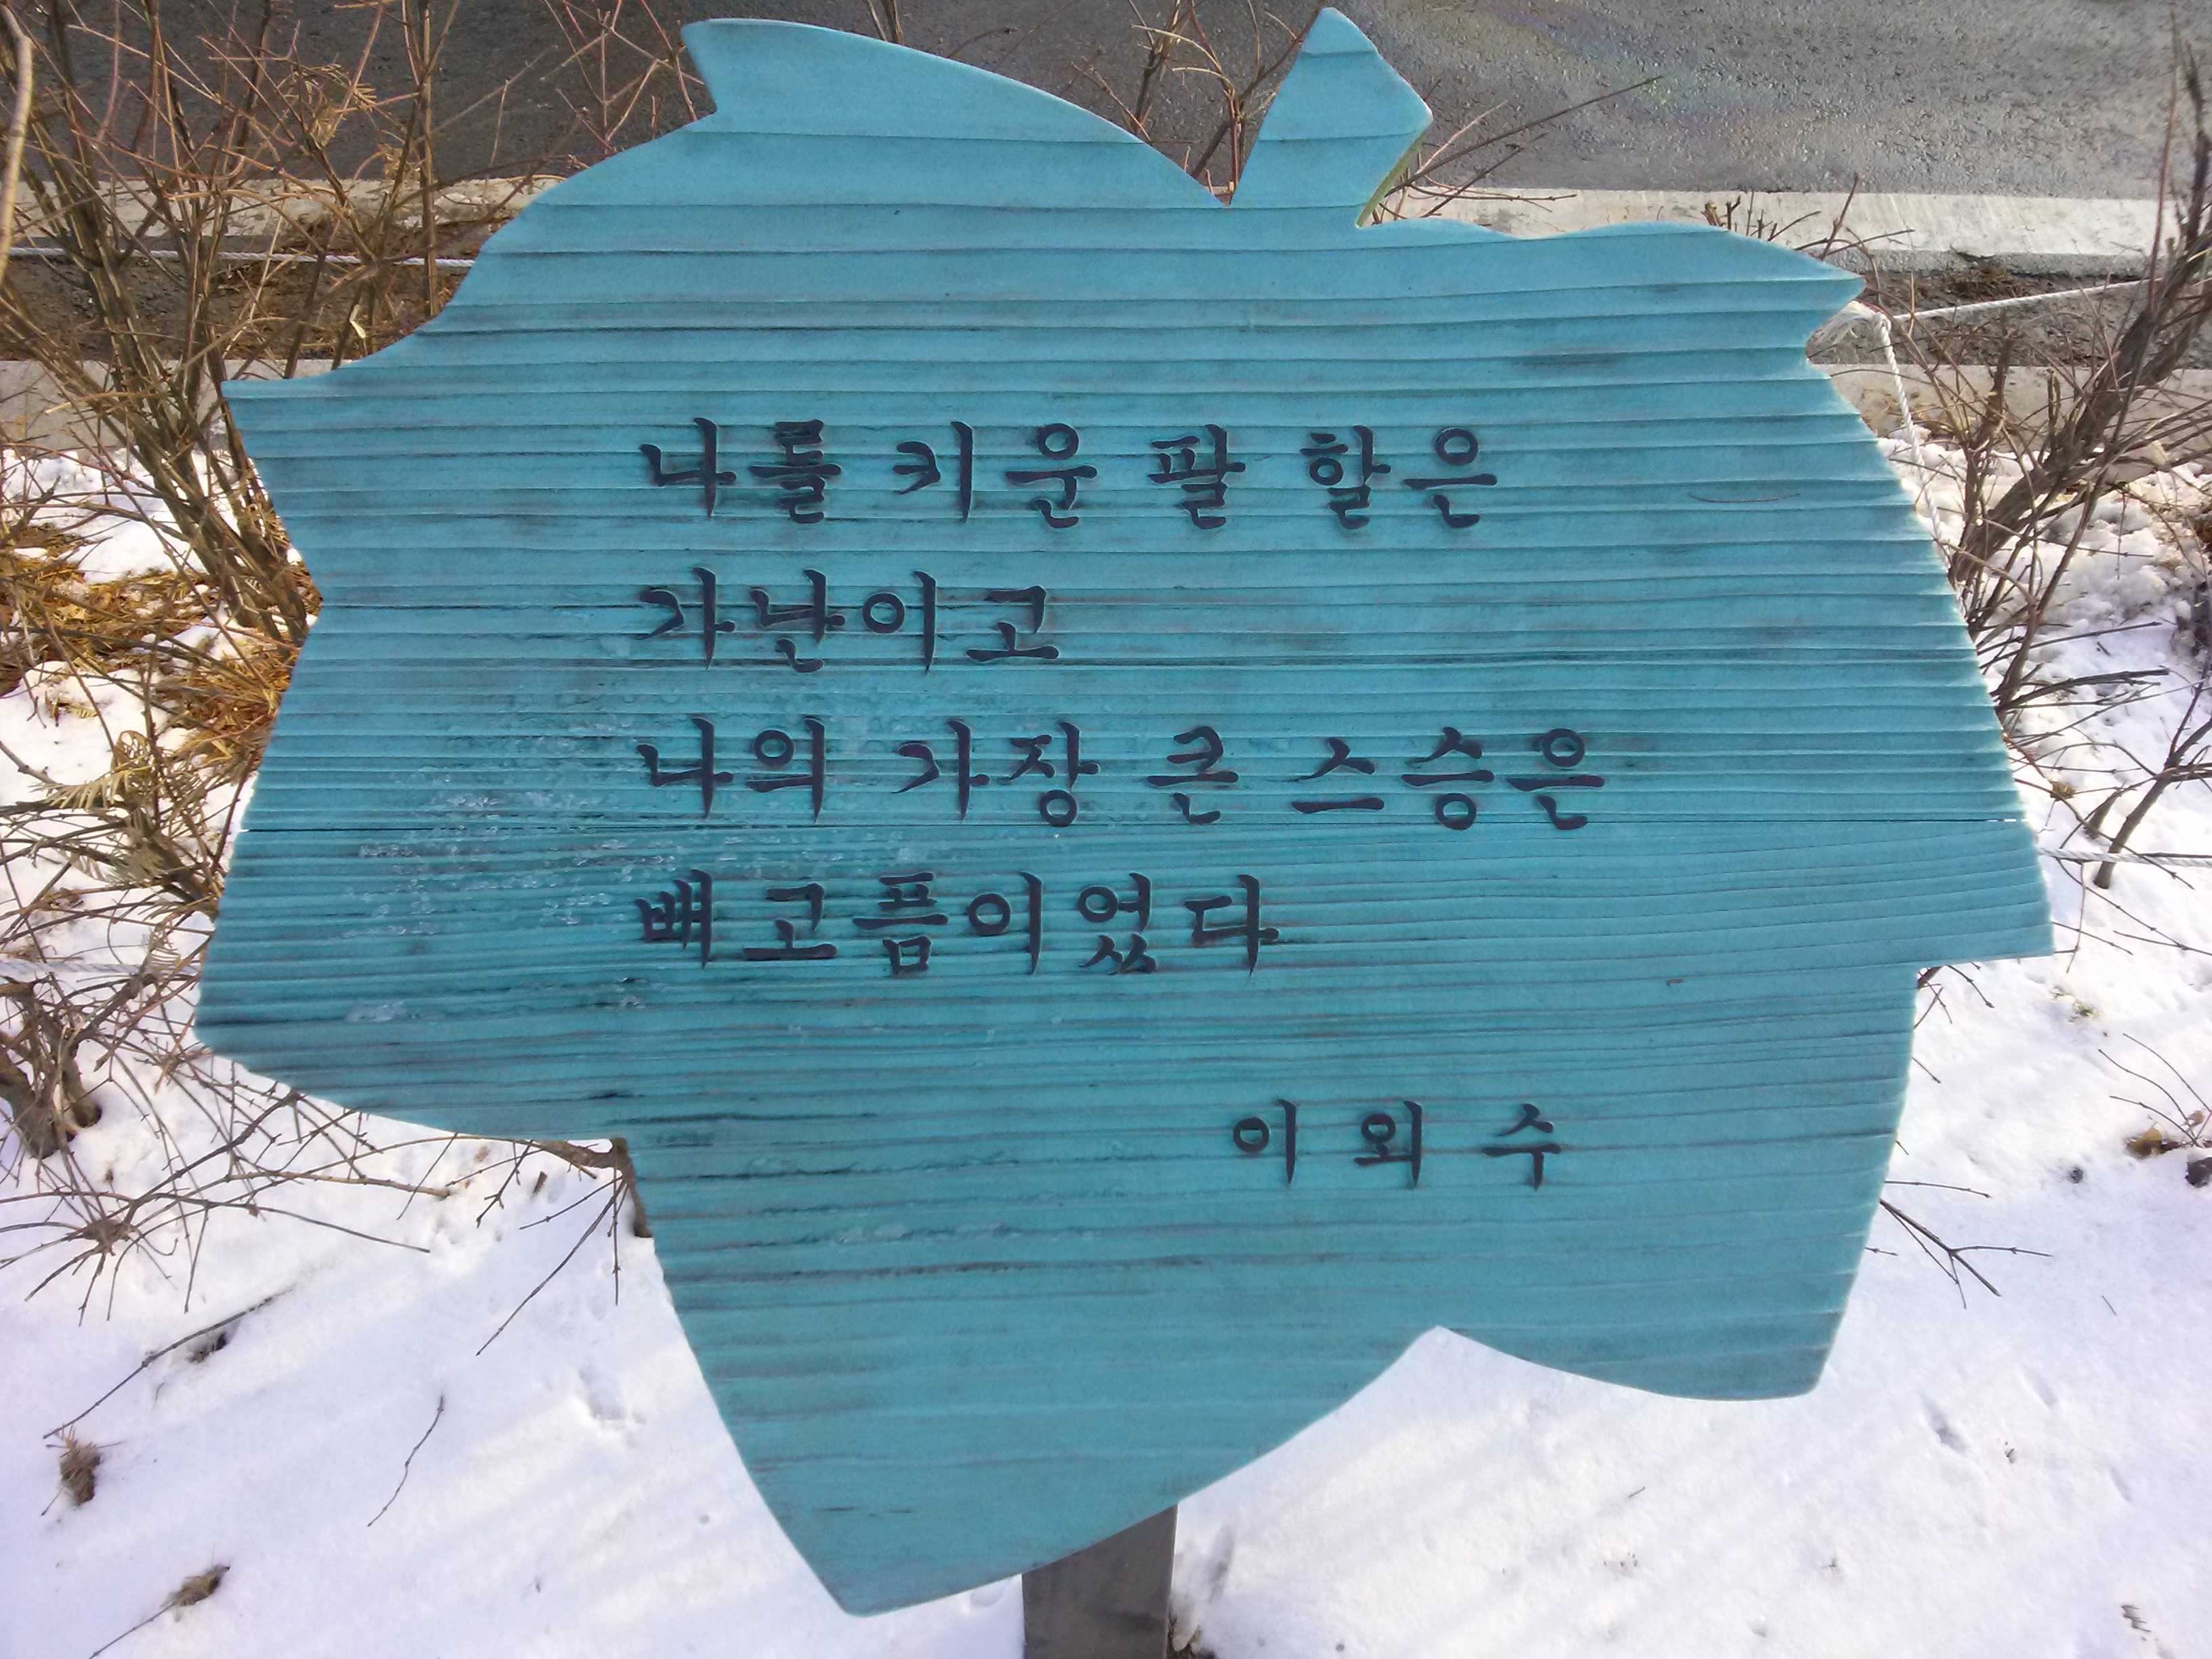 나를 키운 팔 할은
가난이고
나의 가장 큰 스승은
배고픔이었다
이 외 수